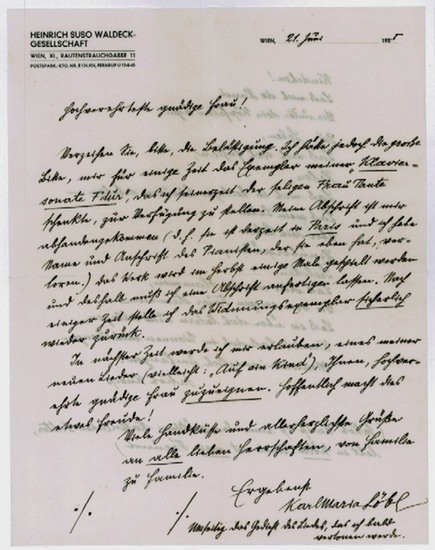 HEINRICH SUSO WALDECK-
GESELLSCHAFT
WIEN, XI., RAUTENSTRAUCHGASSE 11
WIEN, 21. Juni 195
Hochverehrteste gnädige Frau!
Verzeihen Sie, bitte, die Belästigung. Ich hätte jedoch die große
Bitte, mir für einige Zeit das Exemplar meiner "Klavier-
sonate F dur", das ich seinerzeit der seligen Frau Tante
schenkte, zur Verfügung zu stellen. Meine Abschrift ist mir
abhandengekommen (d. h. sie ist derzeit in Paris und ich habe
Name und Anschrift des Pianisten, der sie eben hat, ver-
loren.) Das Werk wird im Herbst einige Male gespielt werden
und deshalb muß ich eine Abschrift anfertigen lassen. Nach
einiger Zeit stelle ich das Widmungsexemplar sicherlich
wieder zurück.
In nächster Zeit werde ich mir erlauben, eines meiner
neuen Lieder (vielleicht: "Auf ein Kind") Ihnen, hochver-
ehrte gnädige Frau zuzueignen. Hoffentlich macht das
etwas Freude!
Viele Handküsse und allerherzlichste Grüße
an alle lieben Herrschaften, von Familie
zu Familie.
Ergebenst
Karl Maria Löbl
./. ./. Umseitig das Gedicht des Liedes, das ich bald
vertonen werde.